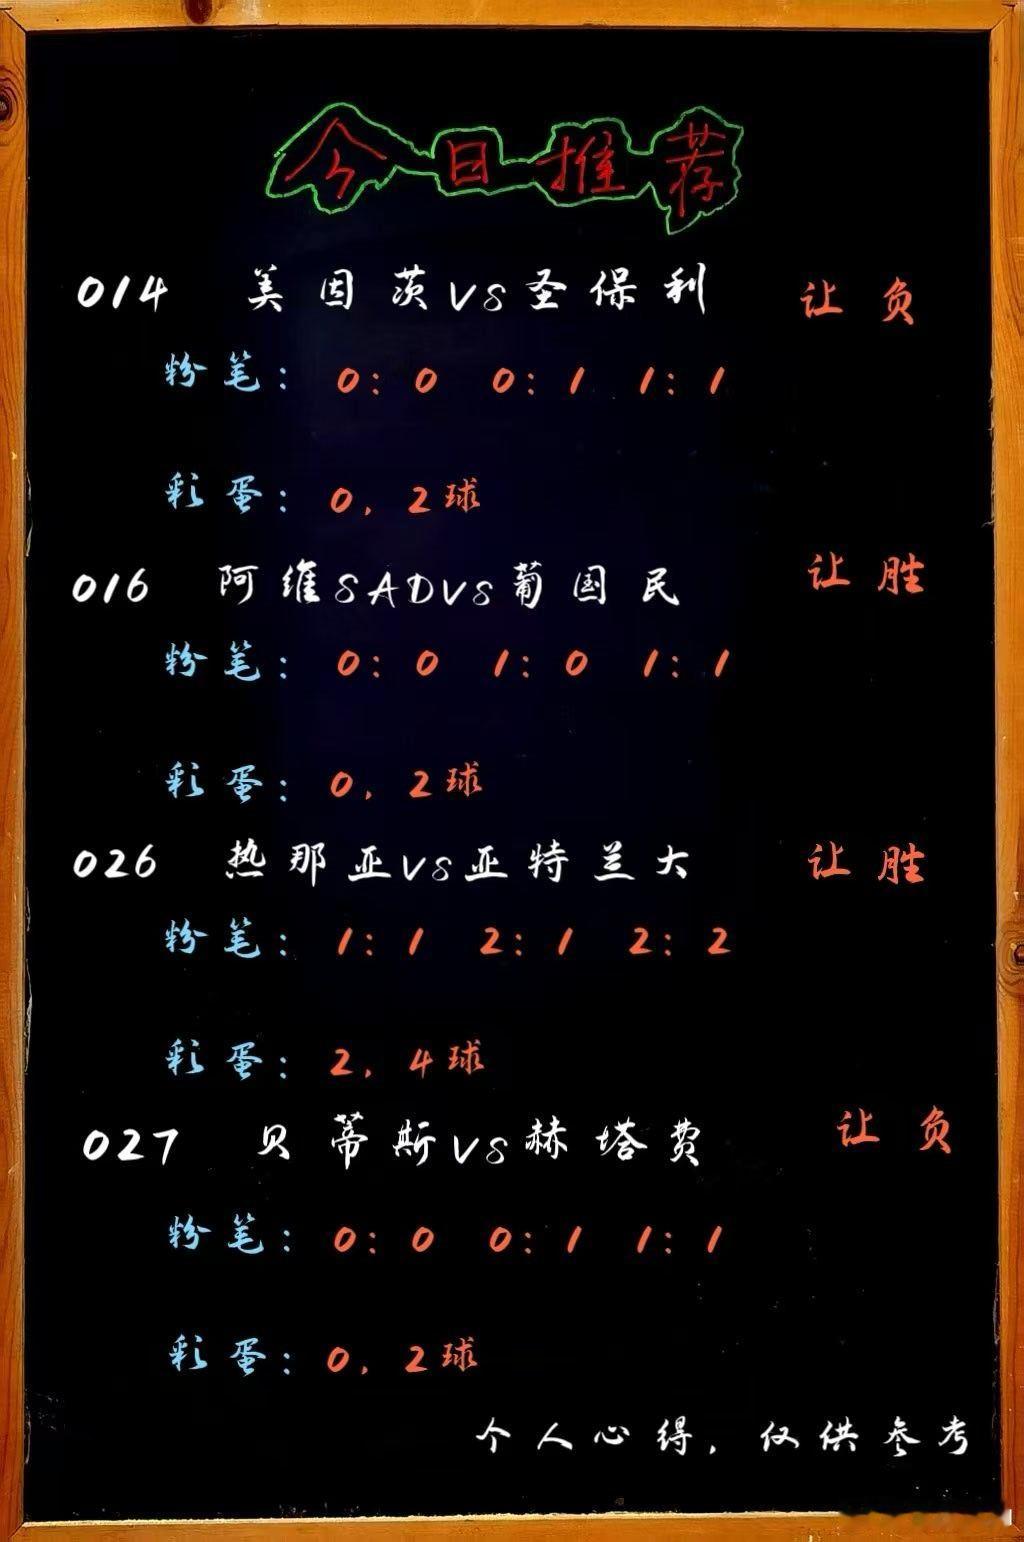 今日推荐
014 美因茨VS圣保利 让负
粉笔: 0:0 0:1 1:1
彩蛋: 0, 2球
016 阿维SADVS葡国民 让胜
粉笔: 0:0 1:0 1:1
彩蛋: 0, 2球
026 热那亚VS亚特兰大 让胜
粉笔: 1:1 2:1 2:2
彩蛋: 2, 4球
027 贝蒂斯VS赫塔费 让负
粉笔: 0:0 0:1 1:1
彩蛋: 0, 2球
个人心得, 仅供参考